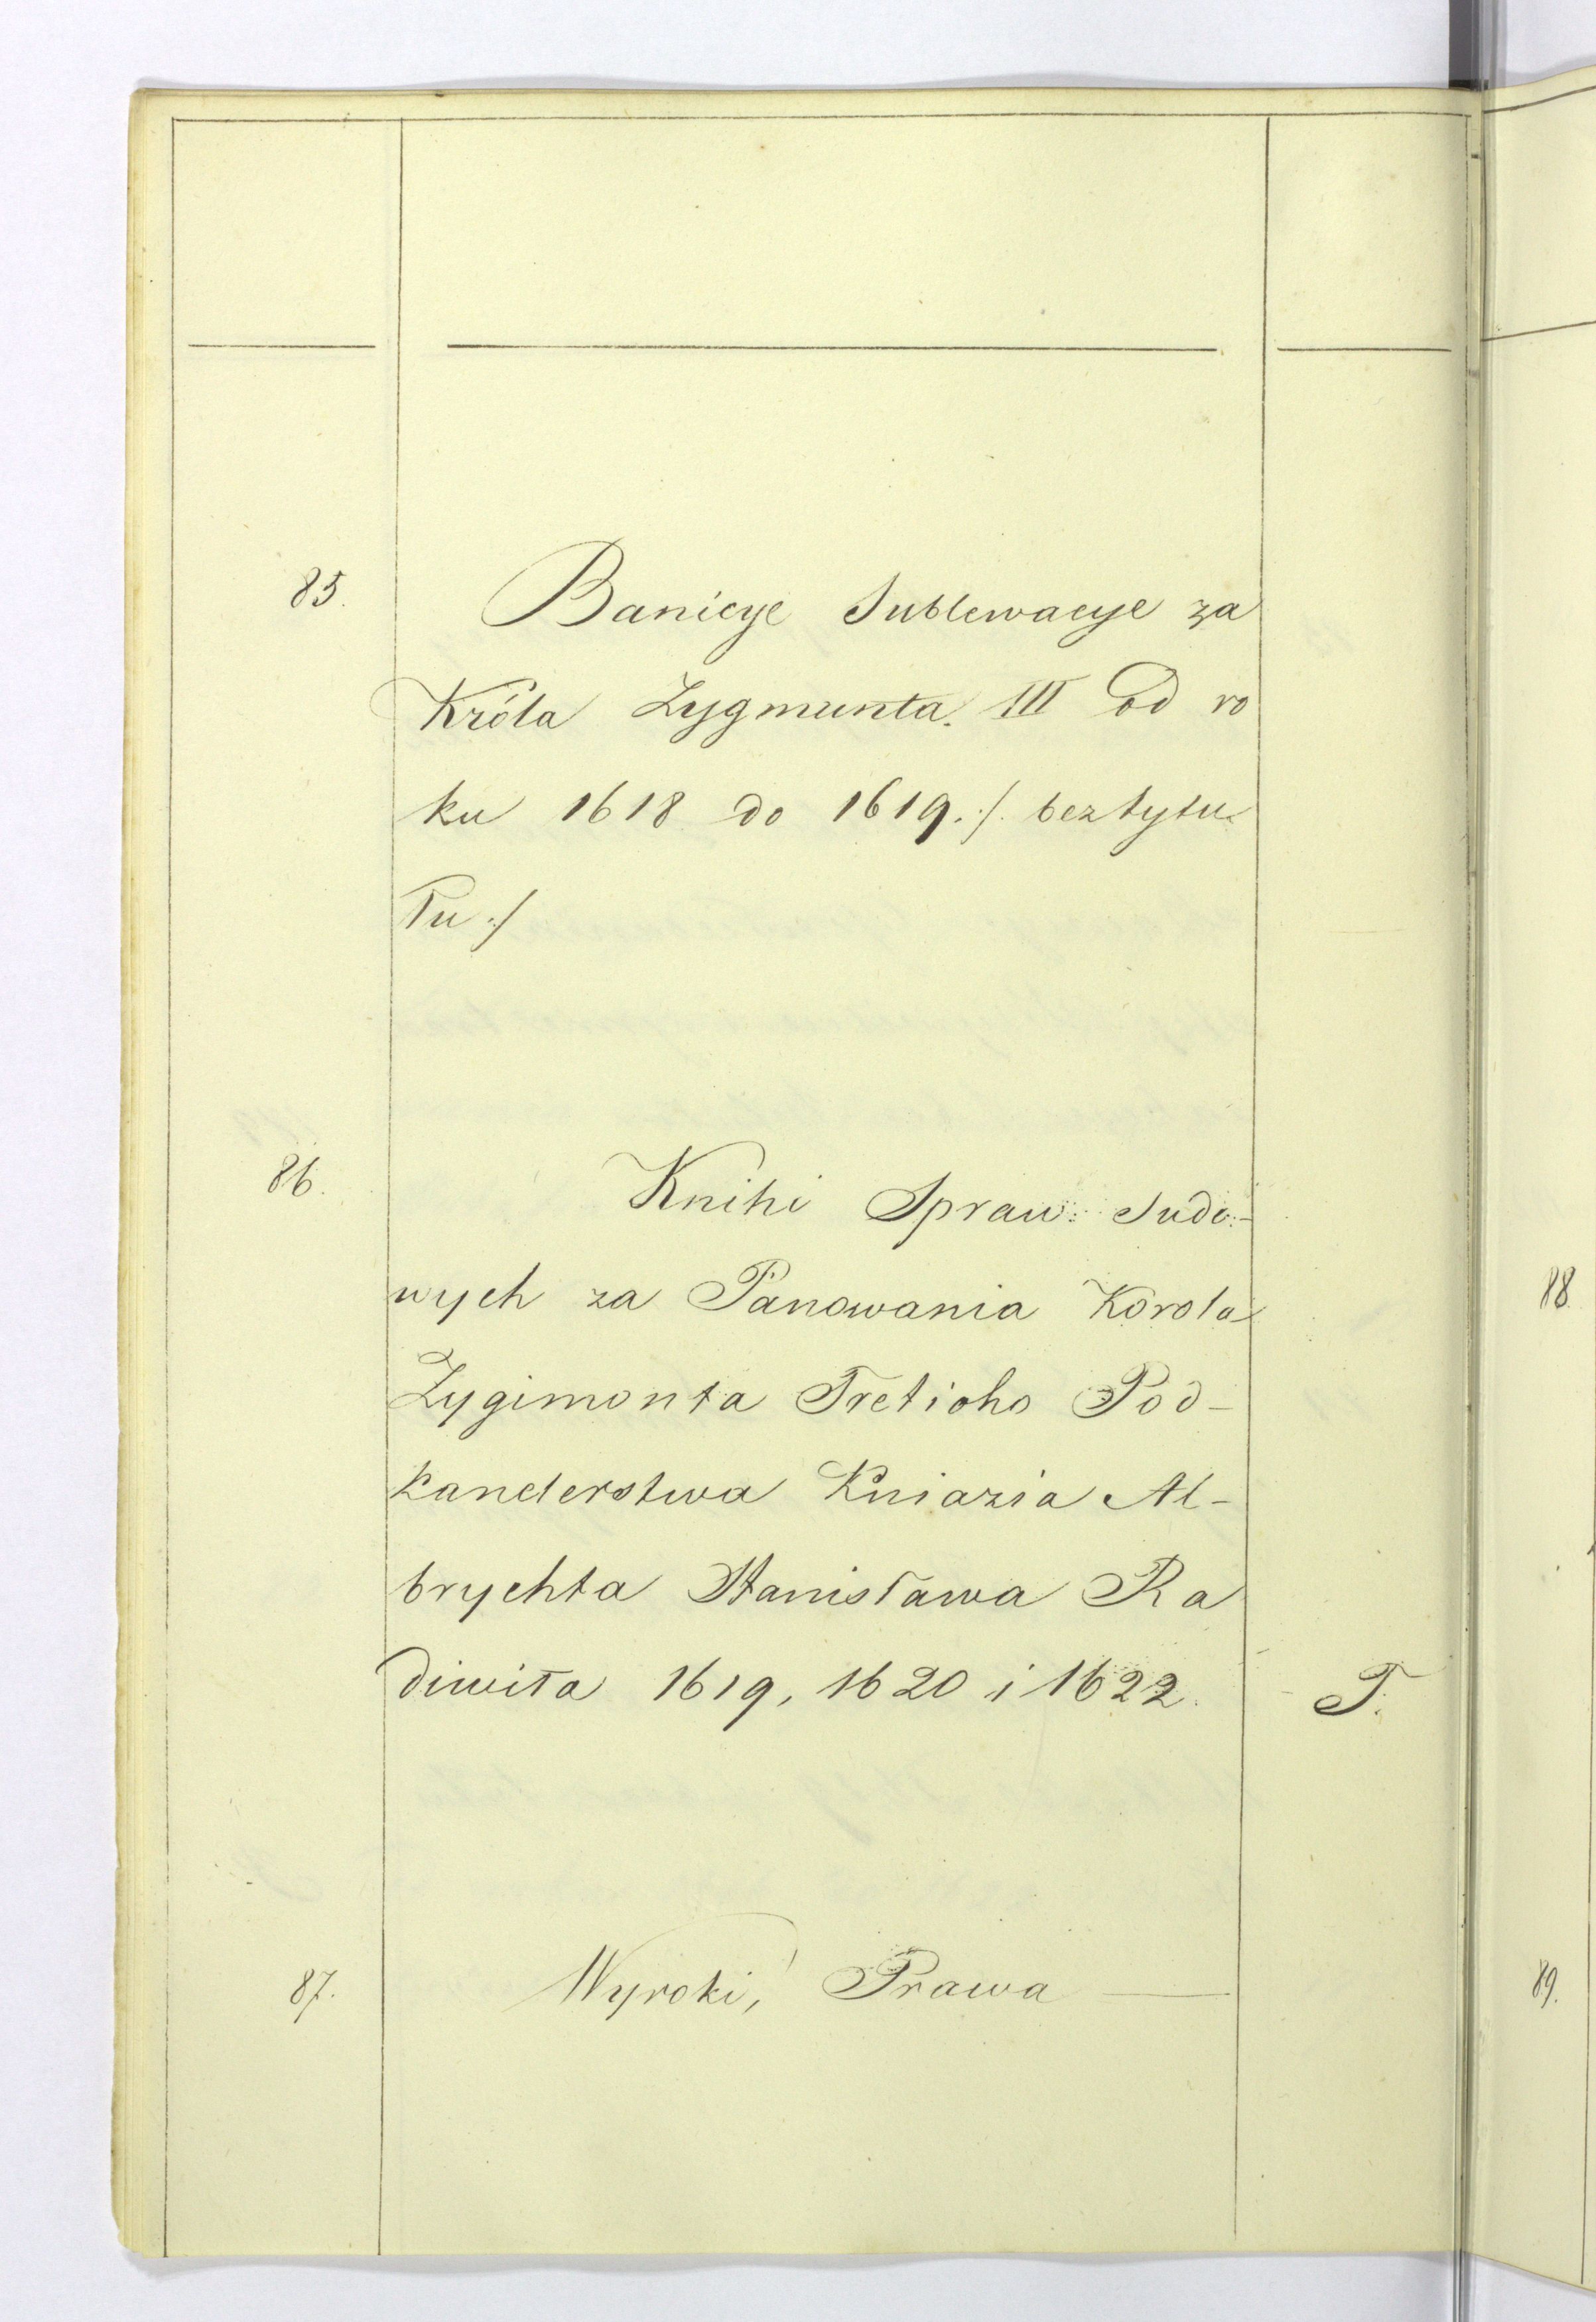 85. Banicye Sublewacye za
Króla Zygmunta III od ro
ku 1618 do 1619. /. bez tytu
łu ./
86. Knihi Spraw Sudo-
wych za Panowania Korola
Zygimonta Tretioho Pod-
kanclerstwa Kniazia Al-
brychta Stanisława Ra
diwiła 1619, 1620 i 1622. T.
87. Wyroki, Prawa —
88.
89.